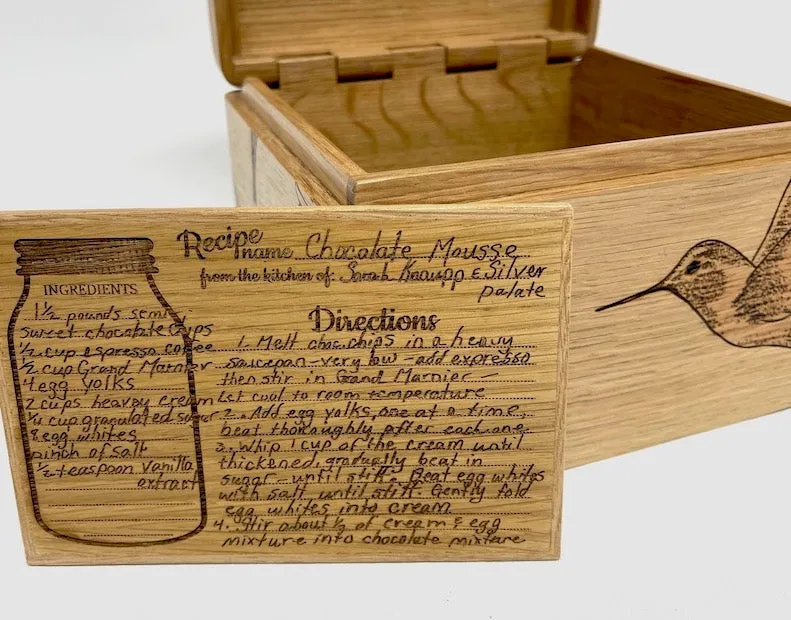 Recipe name Chocolate Mousse
from the kitchen of: Sarah & Silver
palate
INGREDIENTS
1½ pounds semi
sweet chocolate cups
½ cup espresso coffee
½ cup Grand Marnier
4 egg yolks
2 cups heavey cream
¼ cup granulated sugar
8 egg whites
pinch of salt
½ teaspoon vanilla
extract
Directions
1. Melt choc.chips in a heavy
saucepan-very low-add expresso
then stir in Grand Marnier
Let cool to room temperature
2. Add egg yolks, one at a time,
beat thoroughly after each one.
3. Whip 1 cup of the cream until
thickened, gradually beat in
sugar-until stiff. Beat egg whites
with salt until stiff. Gently fold
egg whites into cream.
4. Stir about ⅓ of cream & egg
mixture into chocolate mixture